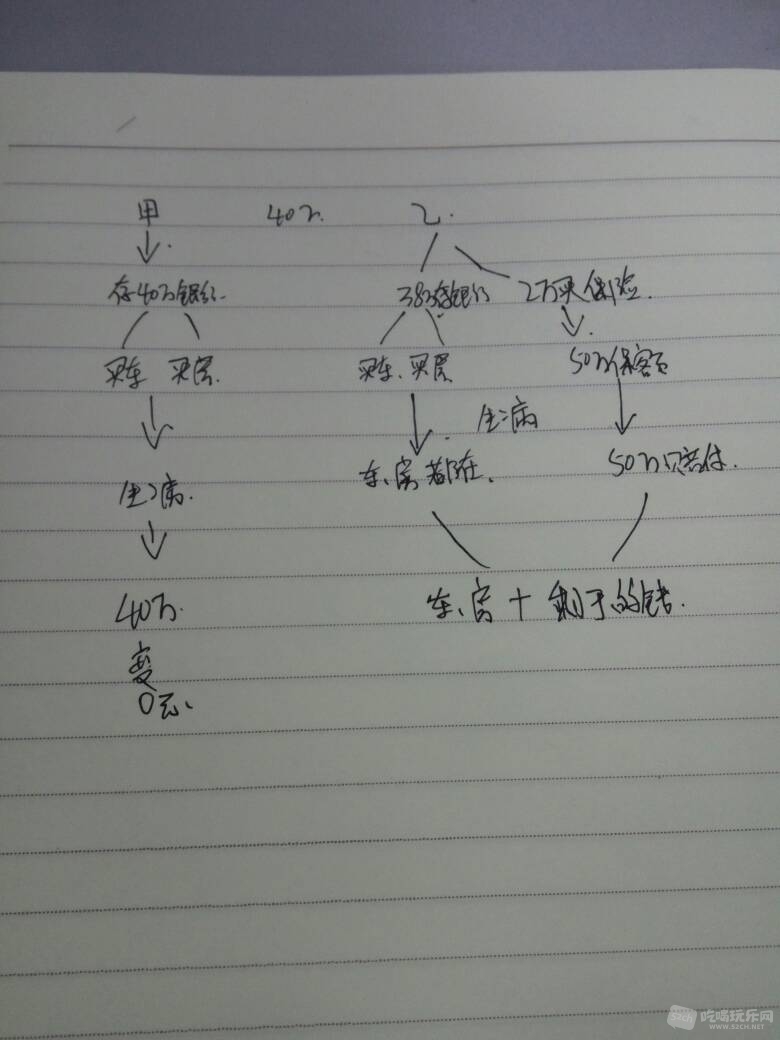 甲 40万 乙.
存40万银行. 38万存银行 2万买保险.
买车 买房. 买车、买房 50万保客额
生病
生病. 车、房都在. 50万赔付.
40万. 车、房 + 剩于的钱.
变
0元.
吃喝玩乐网
WWW.52CH.NET